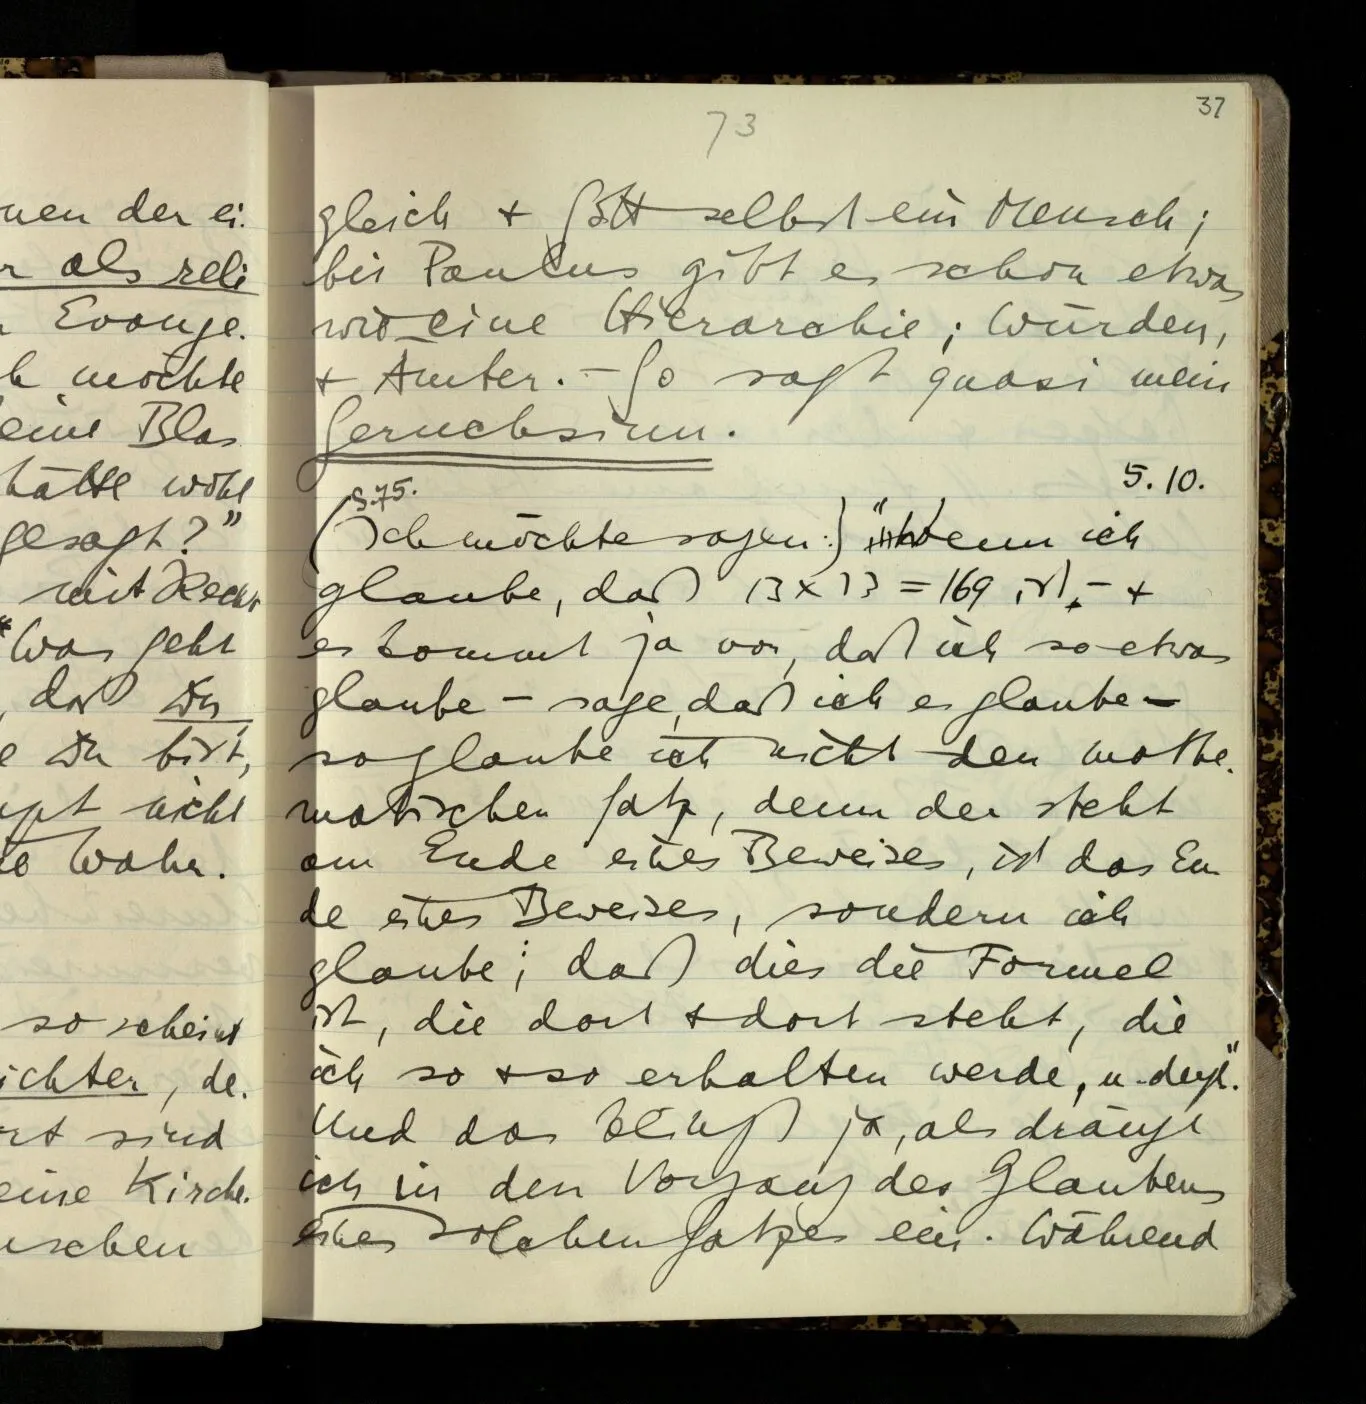 nen der ei.
r als reli
n Evange.
h möchte
eine Blas
hätte wohl
gesagt?"
mit Recht
"Was geht
, daß Du
e Du bist,
upt nicht
so wahr.
so scheint
ichter, de.
rt sind
eine Kirche.
uschen
37
73
gleich + Gott selbst ein Mensch;
bei Paulus gibt es schon etwas
wie eine Hierarchie; Würden,
+ Ämter. – So sagt quasi mein
Geruchsinn.
S.75.
5.10.
(Ich möchte sagen:) "Wenn ich
glaube, daß 13 x 13 = 169 ist, – +
es kommt ja vor, daß ich so etwas
glaube – sage, daß ich es glaube –
so glaube ich nicht den mathe.
matischen Satz, denn der steht
am Ende eines Beweises, ist das En
de eines Beweises, sondern ich
glaube; daß dies die Formel
ist, die dort + dort steht, die
ich so + so erhalten werde, u. dergl."
Und das klingt ja, als dränge
ich in den Vorgang des Glaubens
eines solchen Satzes ein. Während